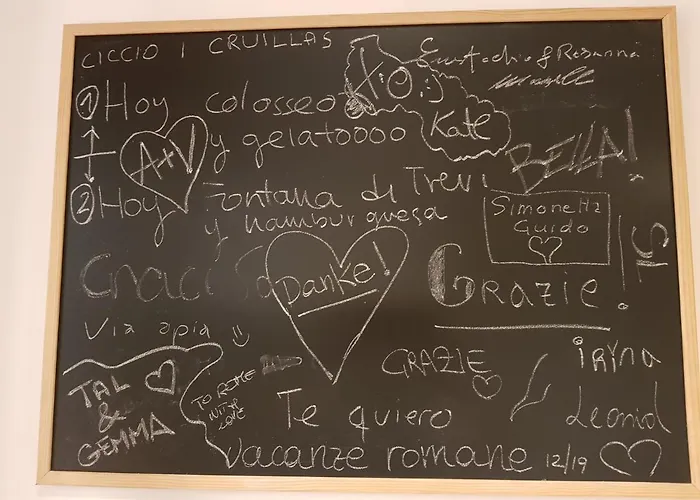 CICCIO I CRUILLAS
Eustachio & Rosanna
① Hoy colosseo
y gelatoooo
Kate
A+V
BELLA!
② Hoy Fontana di Trevi
y hamburguesa
Simonetta
Guido
Sì!
Danke!
GRAZIE!
Via apia
GRAZIE
iRYna
TAL
&
GEMMA
TO ROME
WITH
LOVE
Te quiero
Leonid
vacanze romane 12/19